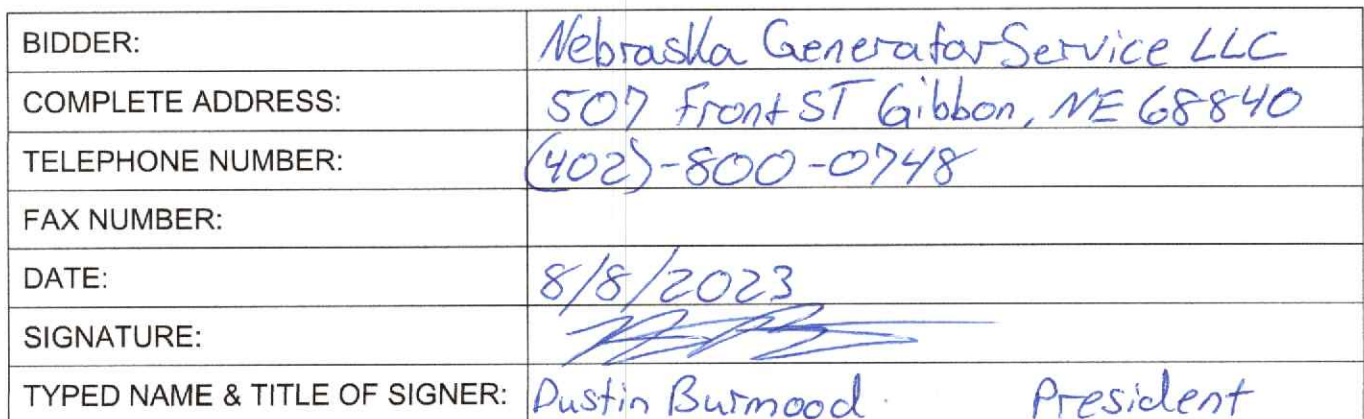 BIDDER: Nebraska Generator Service LLC
COMPLETE ADDRESS: 507 Front ST Gibbon, NE 68840
TELEPHONE NUMBER: (402)-800-0748
FAX NUMBER:
DATE: 8/8/2023
SIGNATURE:
TYPED NAME & TITLE OF SIGNER: Dustin Burmood President